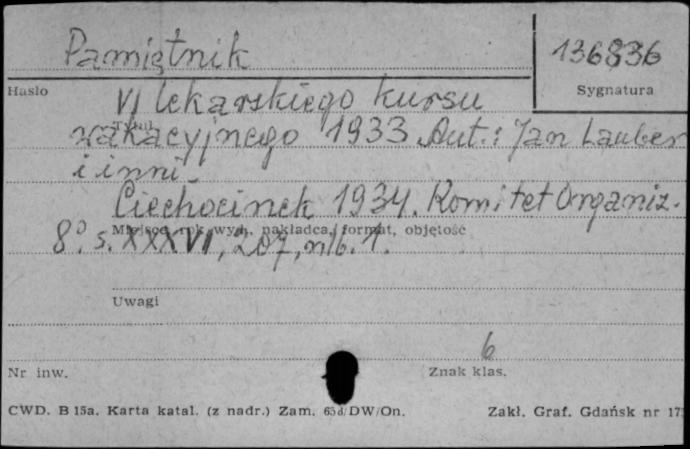 Pamiętnik
136836
Hasło
Sygnatura
VI lekarskiego kursu
Tytuł
wakacyjnego 1933. Aut.: Jan Lauber
i inni.
Ciechocinek 1934. Komitet Organiz.
Miejsce, rok wyd., nakładca, format, objętość
8°. s. XXXVI, 207, nlb. 1.
Uwagi
6
Nr inw.
Znak klas.
CWD. B 15a. Karta katal. (z nadr.) Zam. 65d/DW/On.
Zakł. Graf. Gdańsk nr 17